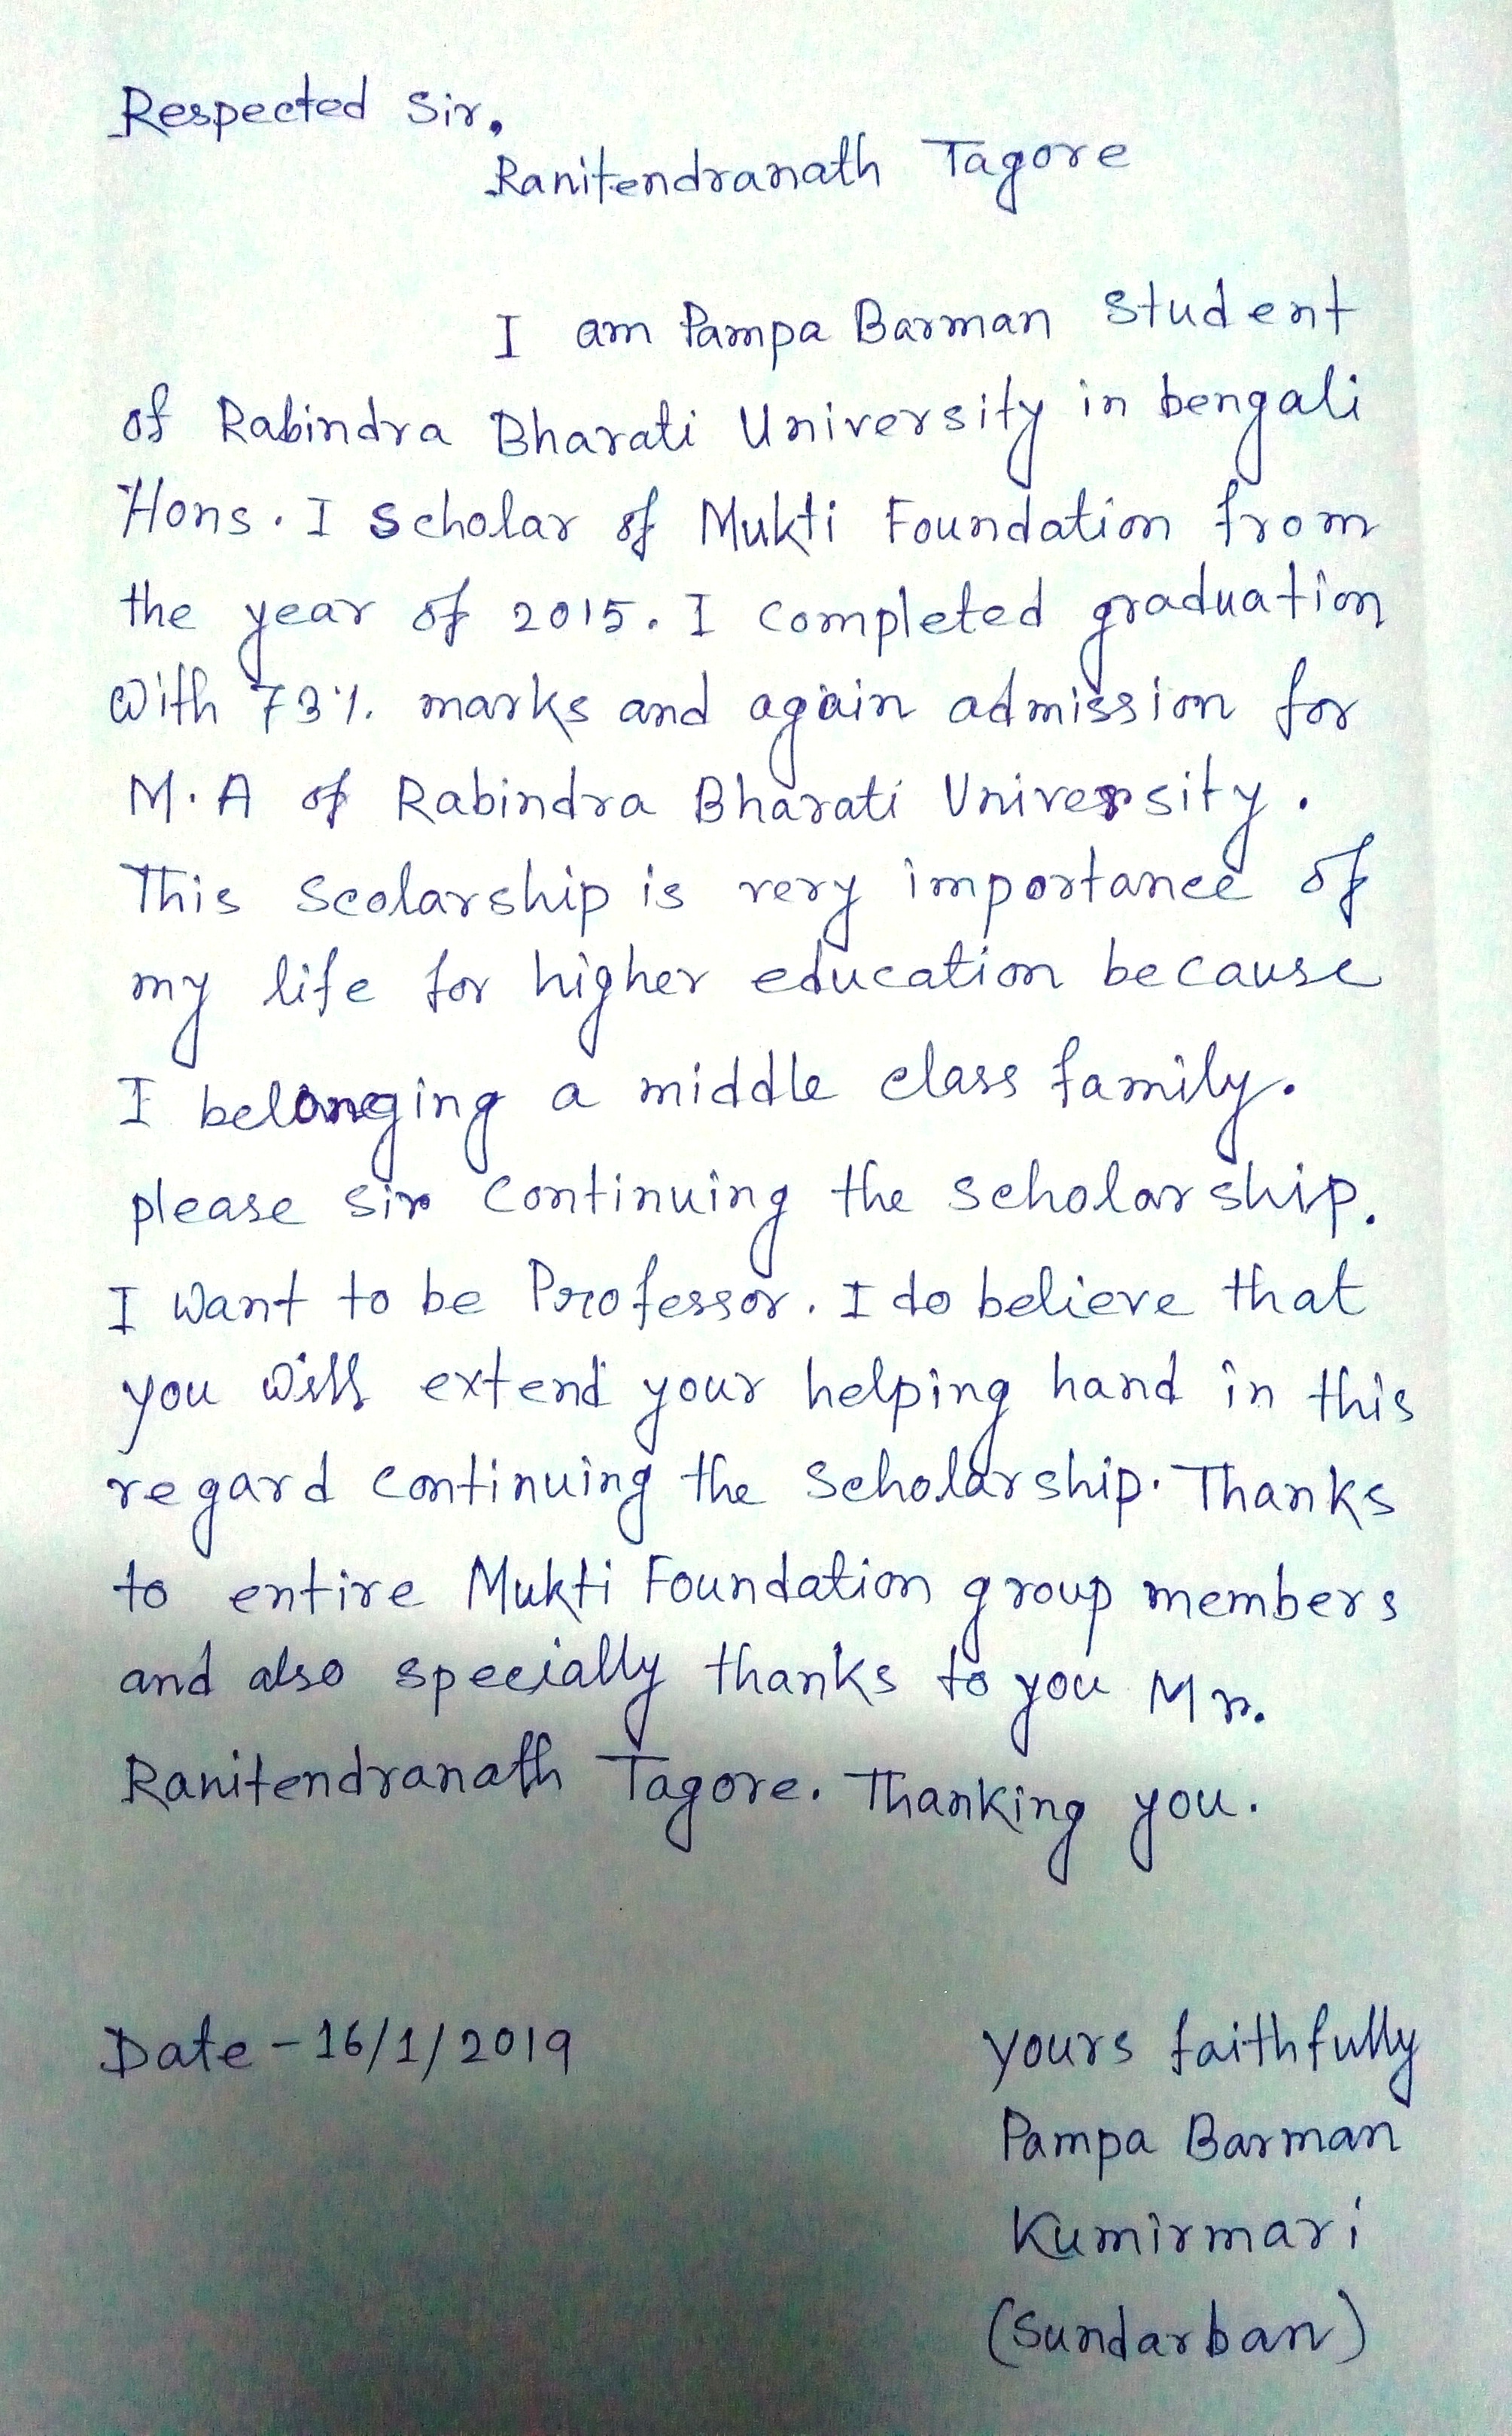 Respected Sir,
Ranitendranath Tagore
I am Pampa Barman Student
of Rabindra Bharati University in bengali
Hons. I scholar of Mukti Foundation from
the year of 2015. I completed graduation
with 73%. marks and again admission for
M.A of Rabindra Bharati University.
This Scolarship is very importance of
my life for higher education because
I belonging a middle class family.
please sir continuing the scholarship.
I want to be Professor. I do believe that
you will extend your helping hand in this
regard continuing the Scholarship. Thanks
to entire Mukti Foundation group members
and also specially thanks to you Mr.
Ranitendranath Tagore. Thanking you.
Date - 16/1/2019
yours faithfully
Pampa Barman
Kumirmari
(Sundarban)